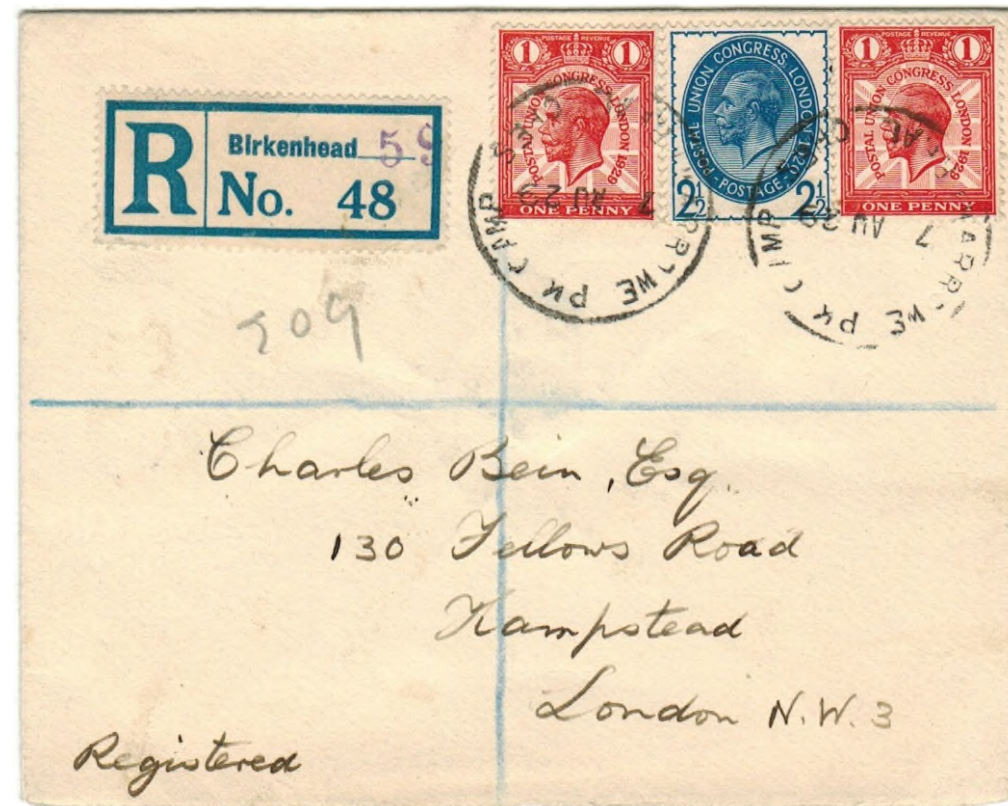 R
Birkenhead 59
No. 48
1 POSTAGE REVENUE 1
POSTAL UNION CONGRESS LONDON 1929
ONE PENNY
POSTAL UNION CONGRESS LONDON 1929
POSTAGE
2½ 2½
1 POSTAGE REVENUE 1
POSTAL UNION CONGRESS LONDON 1929
ONE PENNY
7 AU 29
PK CAMP
7 AU 29
ARROWE PK CAMP
209
Charles Bein, Esq.
130 Fellows Road
Hampstead
London N.W.3
Registered